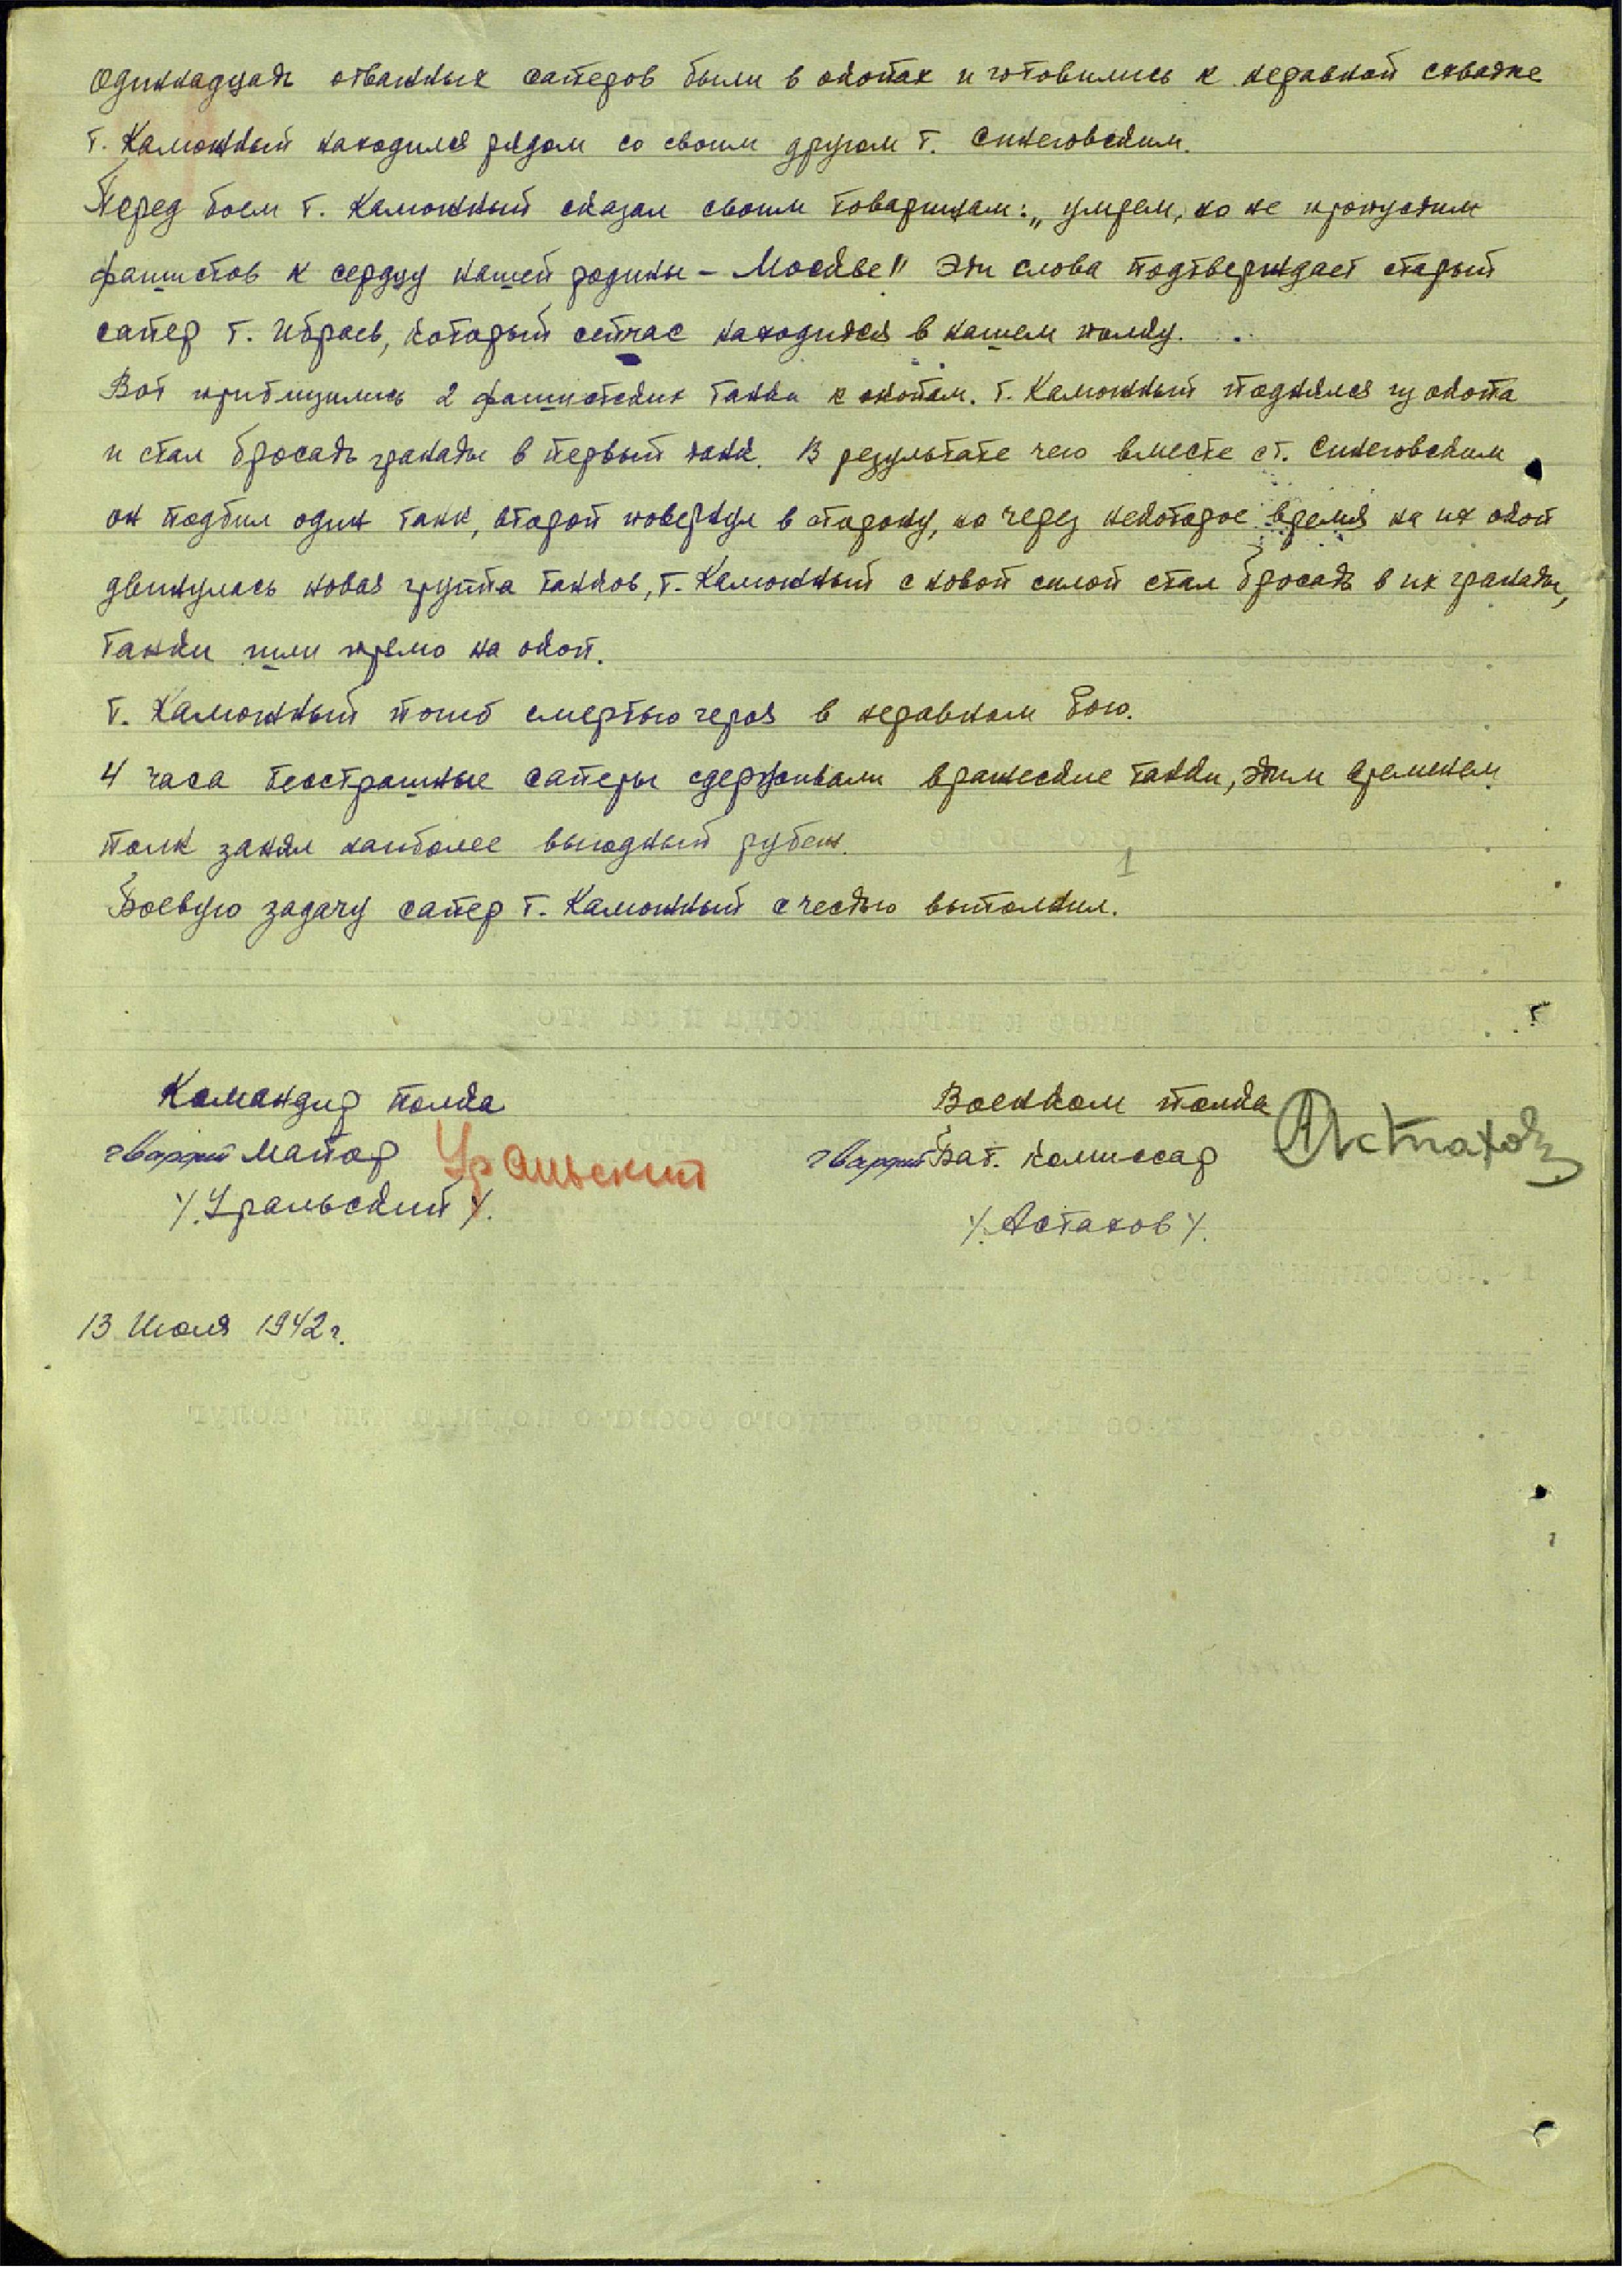 Одиннадцать отважных саперов были в окопах и готовились к неравной схватке
т. Каможный находился рядом со своим другом т. Синеговским.
Перед боем т. Каможный сказал своим товарищам: „умрем, но не пропустим
фашистов к сердцу нашей родины – Москве" Эти слова подтверждает старый
сапер т. Ибраев, который сейчас находится в нашем полку.
Вот приблизились 2 фашистских танки к окопам. т. Каможный поднялся из окопа
и стал бросать гранаты в первый танк. В результате чего вместе с т. Синеговским
он подбил один танк, второй повернул в сторону, но через некоторое время на их окоп
двинулась новая группа танков, т. Каможный с новой силой стал бросать в их гранаты,
танки шли прямо на окоп.
т. Каможный погиб смертью героя в неравном бою.
4 часа бесстрашные саперы сдерживали вражеские танки, этим временем
полк занял наиболее выгодный рубеж.
Боевую задачу сапер т. Каможный с честью выполнил.
Командир полка
гвардии майор Уральский
/.Уральский/.
Военком полка
гвардии Бат. комиссар Астахов
/.Астахов/.
13 Июля 1942 г.